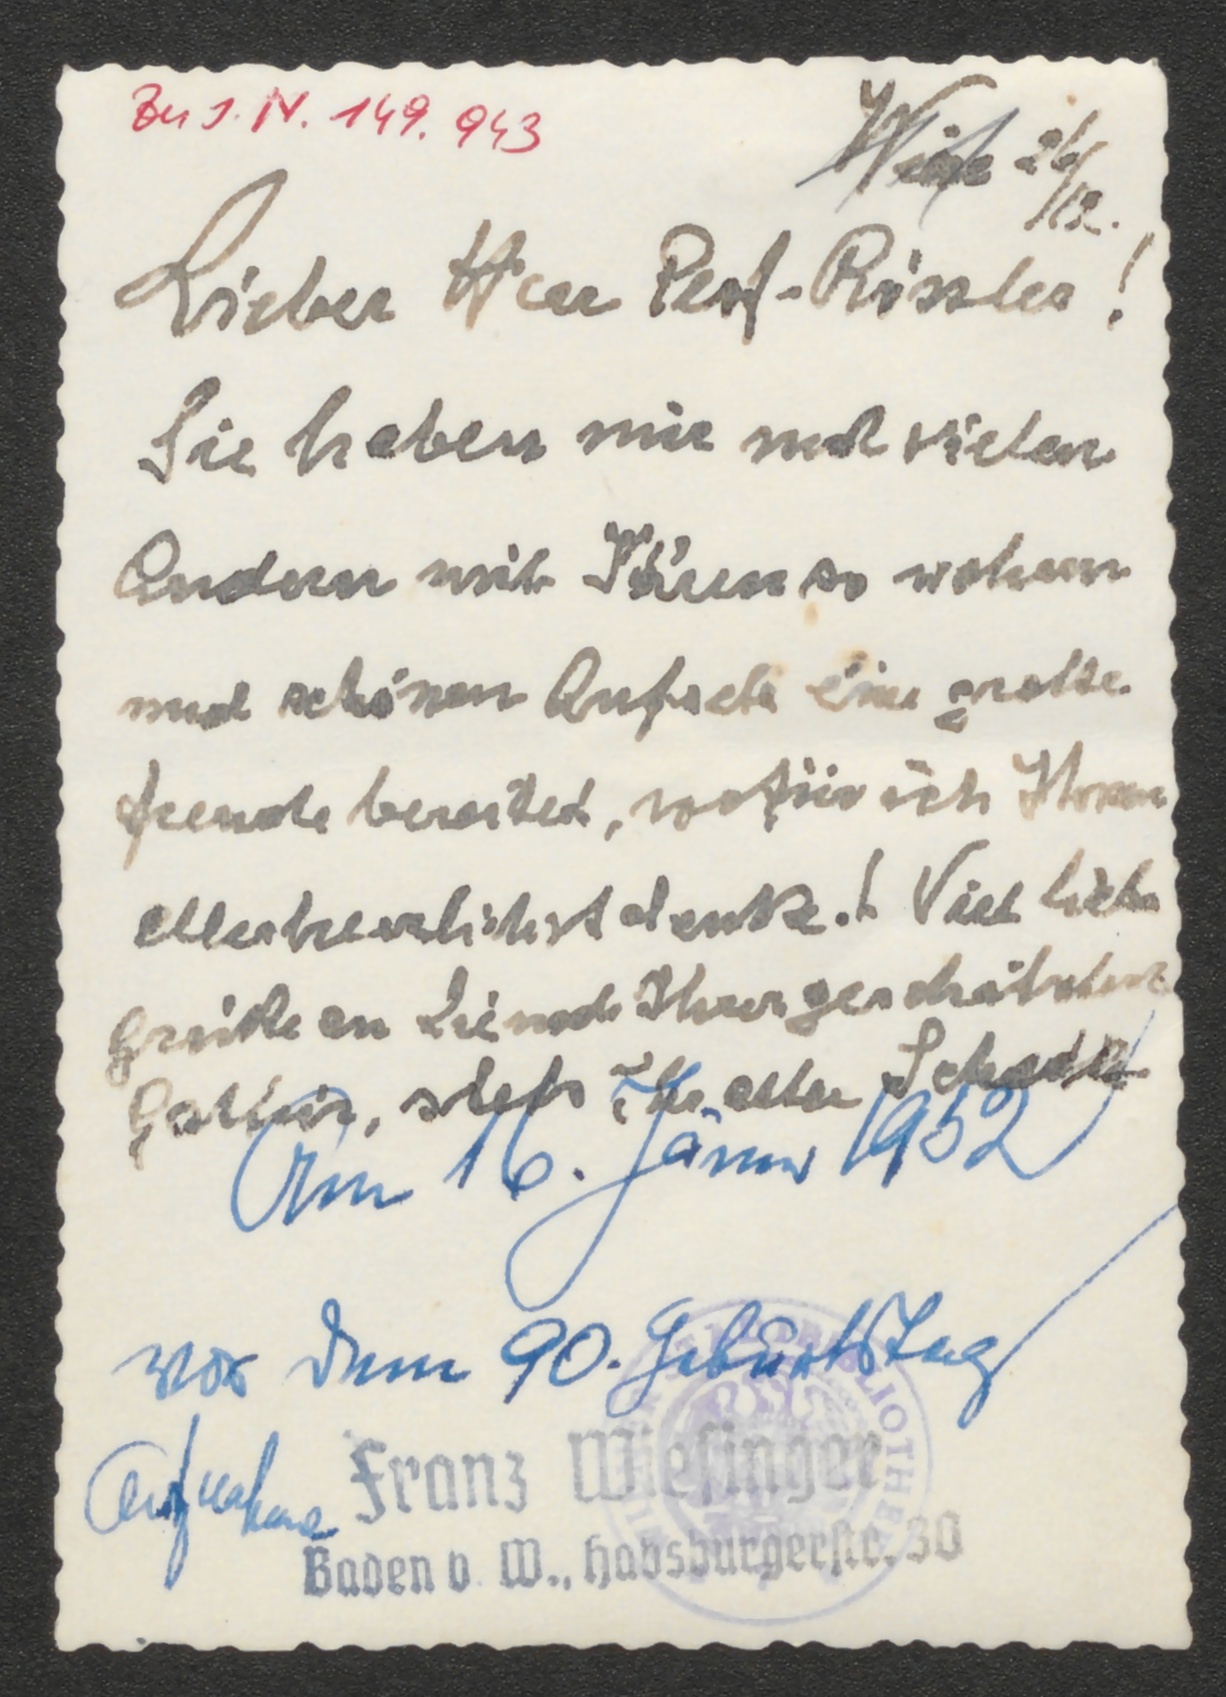 Zu I. N. 149.943
Wien 26/12.
Lieber Herr Prof. Rössler!
Sie haben mir und vielen
Andern mit Ihrem so wahren
und schönen Aufsatz eine große
Freude bereitet, wofür ich Ihnen
allerherzlichst danke! Viel liebe
Grüße an Sie und Ihrer geschätzten
Gattin, stets Ihr alter
Am 16. Jänner 1952
vor dem 90. Geburtstag
Aufnahme
Franz Wiesinger
Baden b. W., Habsburgerstr. 30